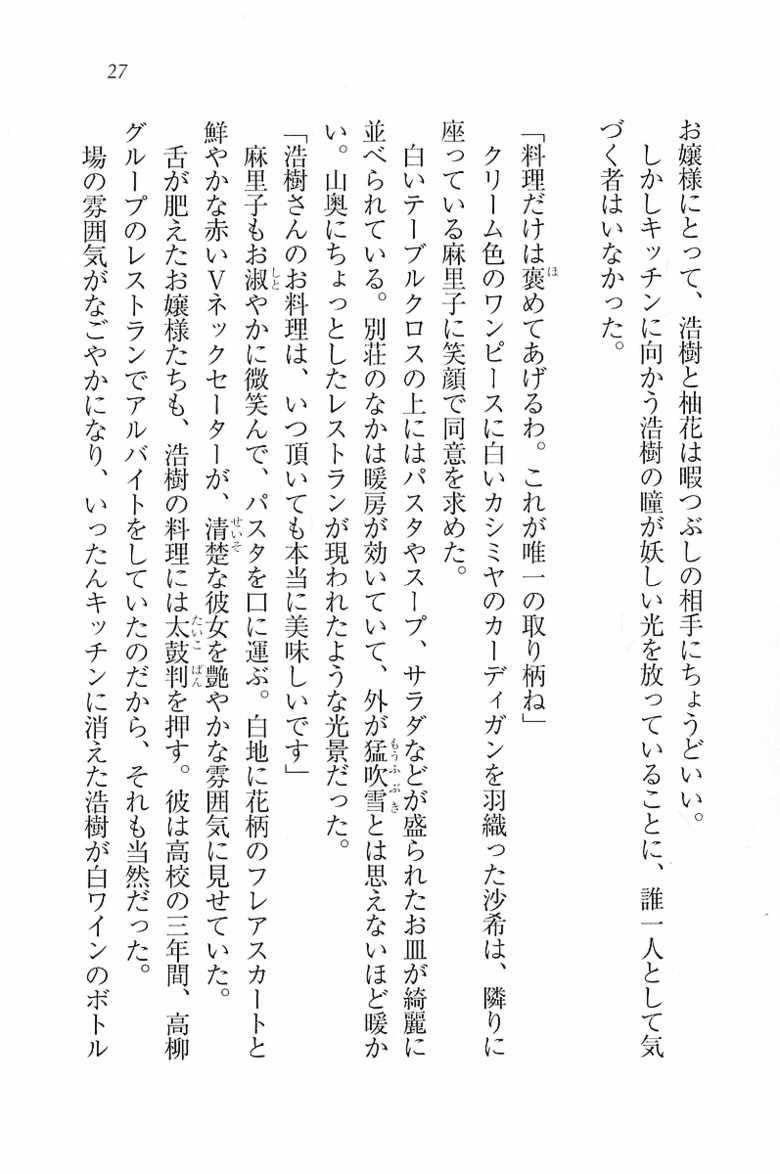 27
お嬢様にとって、浩樹と柚花は暇つぶしの相手にちょうどいい。
しかしキッチンに向かう浩樹の瞳が妖しい光を放っていることに、誰一人として気
づく者はいなかった。
「料理だけは褒めてあげるわ。これが唯一の取り柄ね」
クリーム色のワンピースに白いカシミヤのカーディガンを羽織った沙希は、隣りに
座っている麻里子に笑顔で同意を求めた。
白いテーブルクロスの上にはパスタやスープ、サラダなどが盛られたお皿が綺麗に
並べられている。別荘のなかは暖房が効いていて、外が猛吹雪とは思えないほど暖か
い。山奥にちょっとしたレストランが現われたような光景だった。
「浩樹さんのお料理は、いつ頂いても本当に美味しいです」
麻里子もお淑やかに微笑んで、パスタを口に運ぶ。白地に花柄のフレアスカートと
鮮やかな赤いVネックセーターが、清楚な彼女を艶やかな雰囲気に見せていた。
舌が肥えたお嬢様たちも、浩樹の料理には太鼓判を押す。彼は高校の三年間、高柳
グループのレストランでアルバイトをしていたのだから、それも当然だった。
場の雰囲気がなごやかになり、いったんキッチンに消えた浩樹が白ワインのボトル